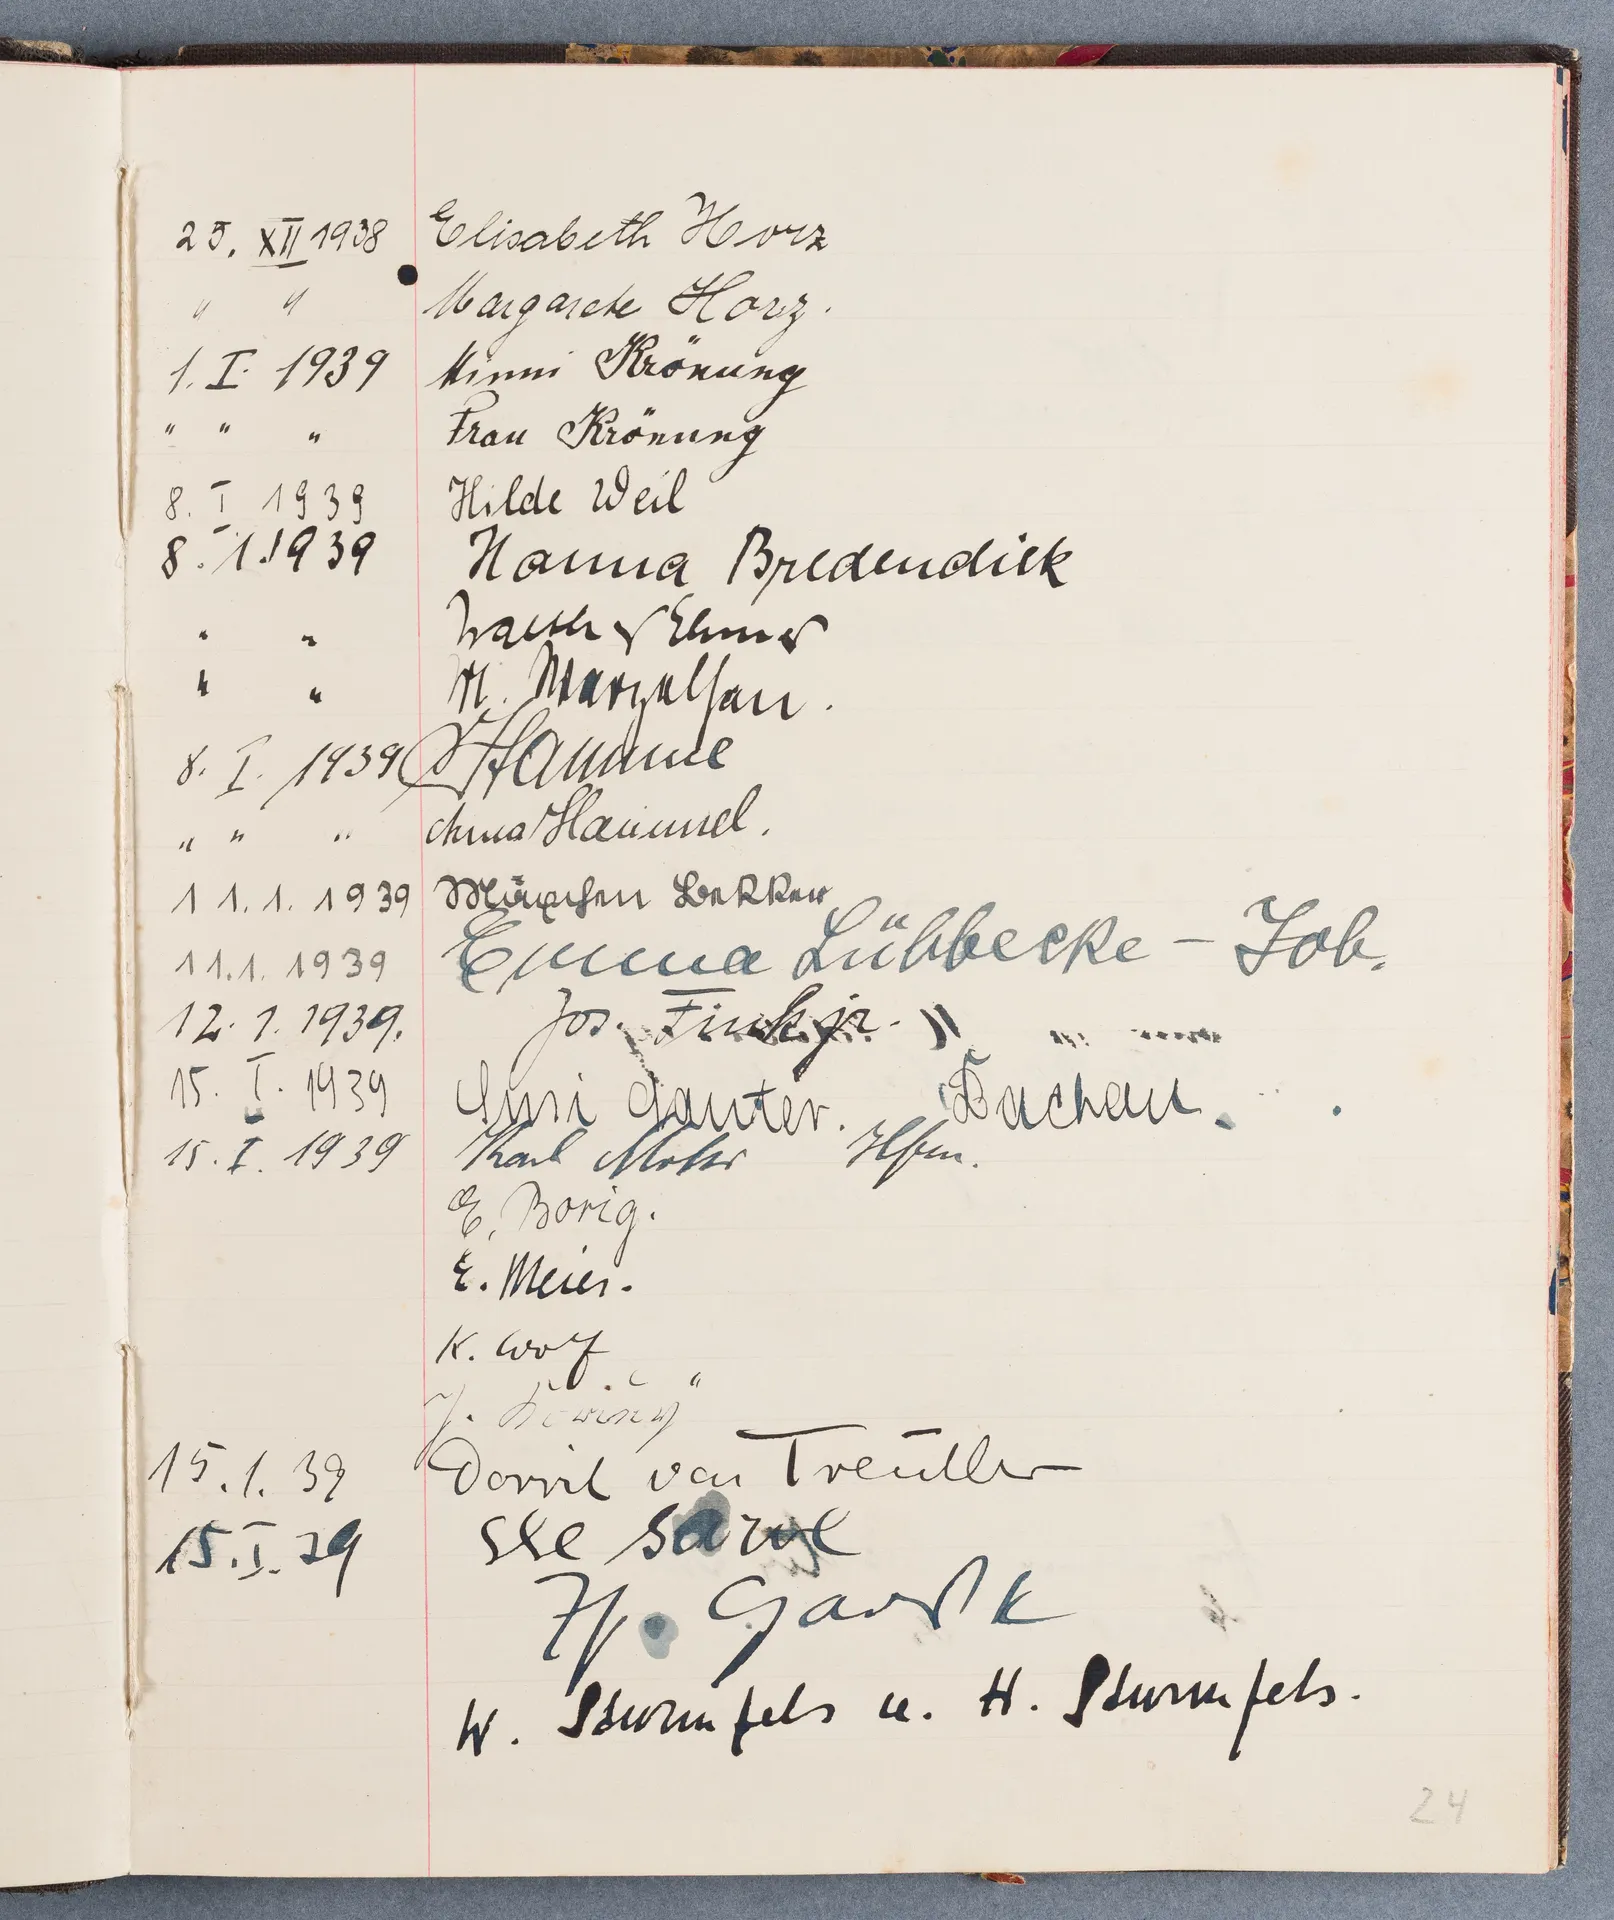 25. XII 1938 Elisabeth Horz
" " Margarete Horz.
1. I. 1939 Minni Krönung
" " " Frau Krönung
8. I 1939 Hilde Weil
8. 1. 1939 Hanna Bredendiek
" "
" " M.
8. I. 1939 Hamme
" " " Anna Hammel.
11. 1. 1939
11. 1. 1939 Emma Lübbecke - Job.
12. 1. 1939. Jos. Fink jr.
15. I. 1939 Susi Gauter. Dachau.
15. I. 1939 Karl
E. Borig.
E. Meier.
K. Wolf
J.
15. 1. 39 Dorrit van Treutler
15. I. 39
W. Sturmfels u. H. Sturmfels.
24